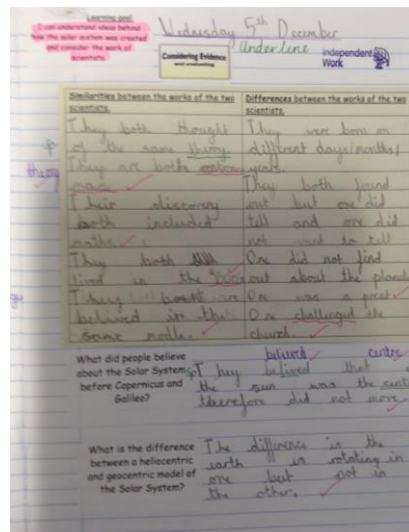 Learning goal:
I can understand ideas behind
how the solar system was created
and consider the work of
scientists.
Wednesday 5th December
Underline
Considering Evidence
and evaluating
Independent
Work
Similarities between the works of the two
scientists.
They both thought
of the same theory.
They are both
man.
Their discovery
both included
maths.
They both
lived in the
They both were
believed in the
same
Differences between the works of the two
scientists.
They were born on
different days/months/
years.
They both found
out but one did
tell and one did
not want to tell
One did not find
out about the planets
One was a priest
One challenged the
church.
theory
What did people believe
about the Solar System
before Copernicus and
Galileo?
believed centre
They belived that
the sun was the
therefore did not move
What is the difference
between a heliocentric
and geocentric model of
the Solar System?
The difference is the
earth is rotating in
one but not in
the other.